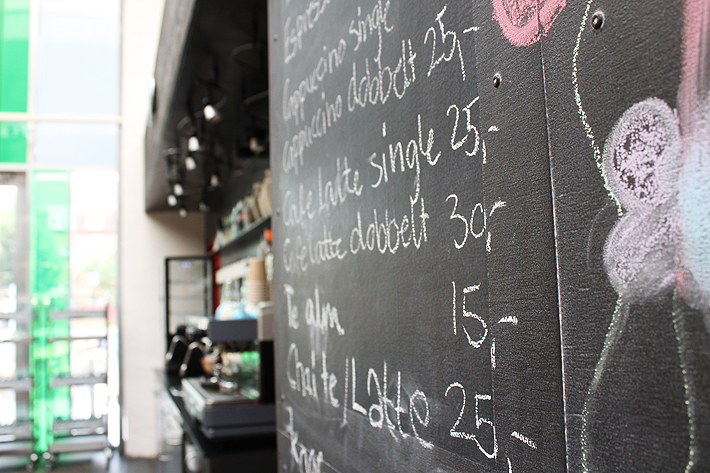 Espresso
Cappuccino single
Cappuccino dobbelt 25,-
Cafe latte single 25,-
Cafe latte dobbelt 30,-
Te alm 15,-
Chai te/Latte 25,-